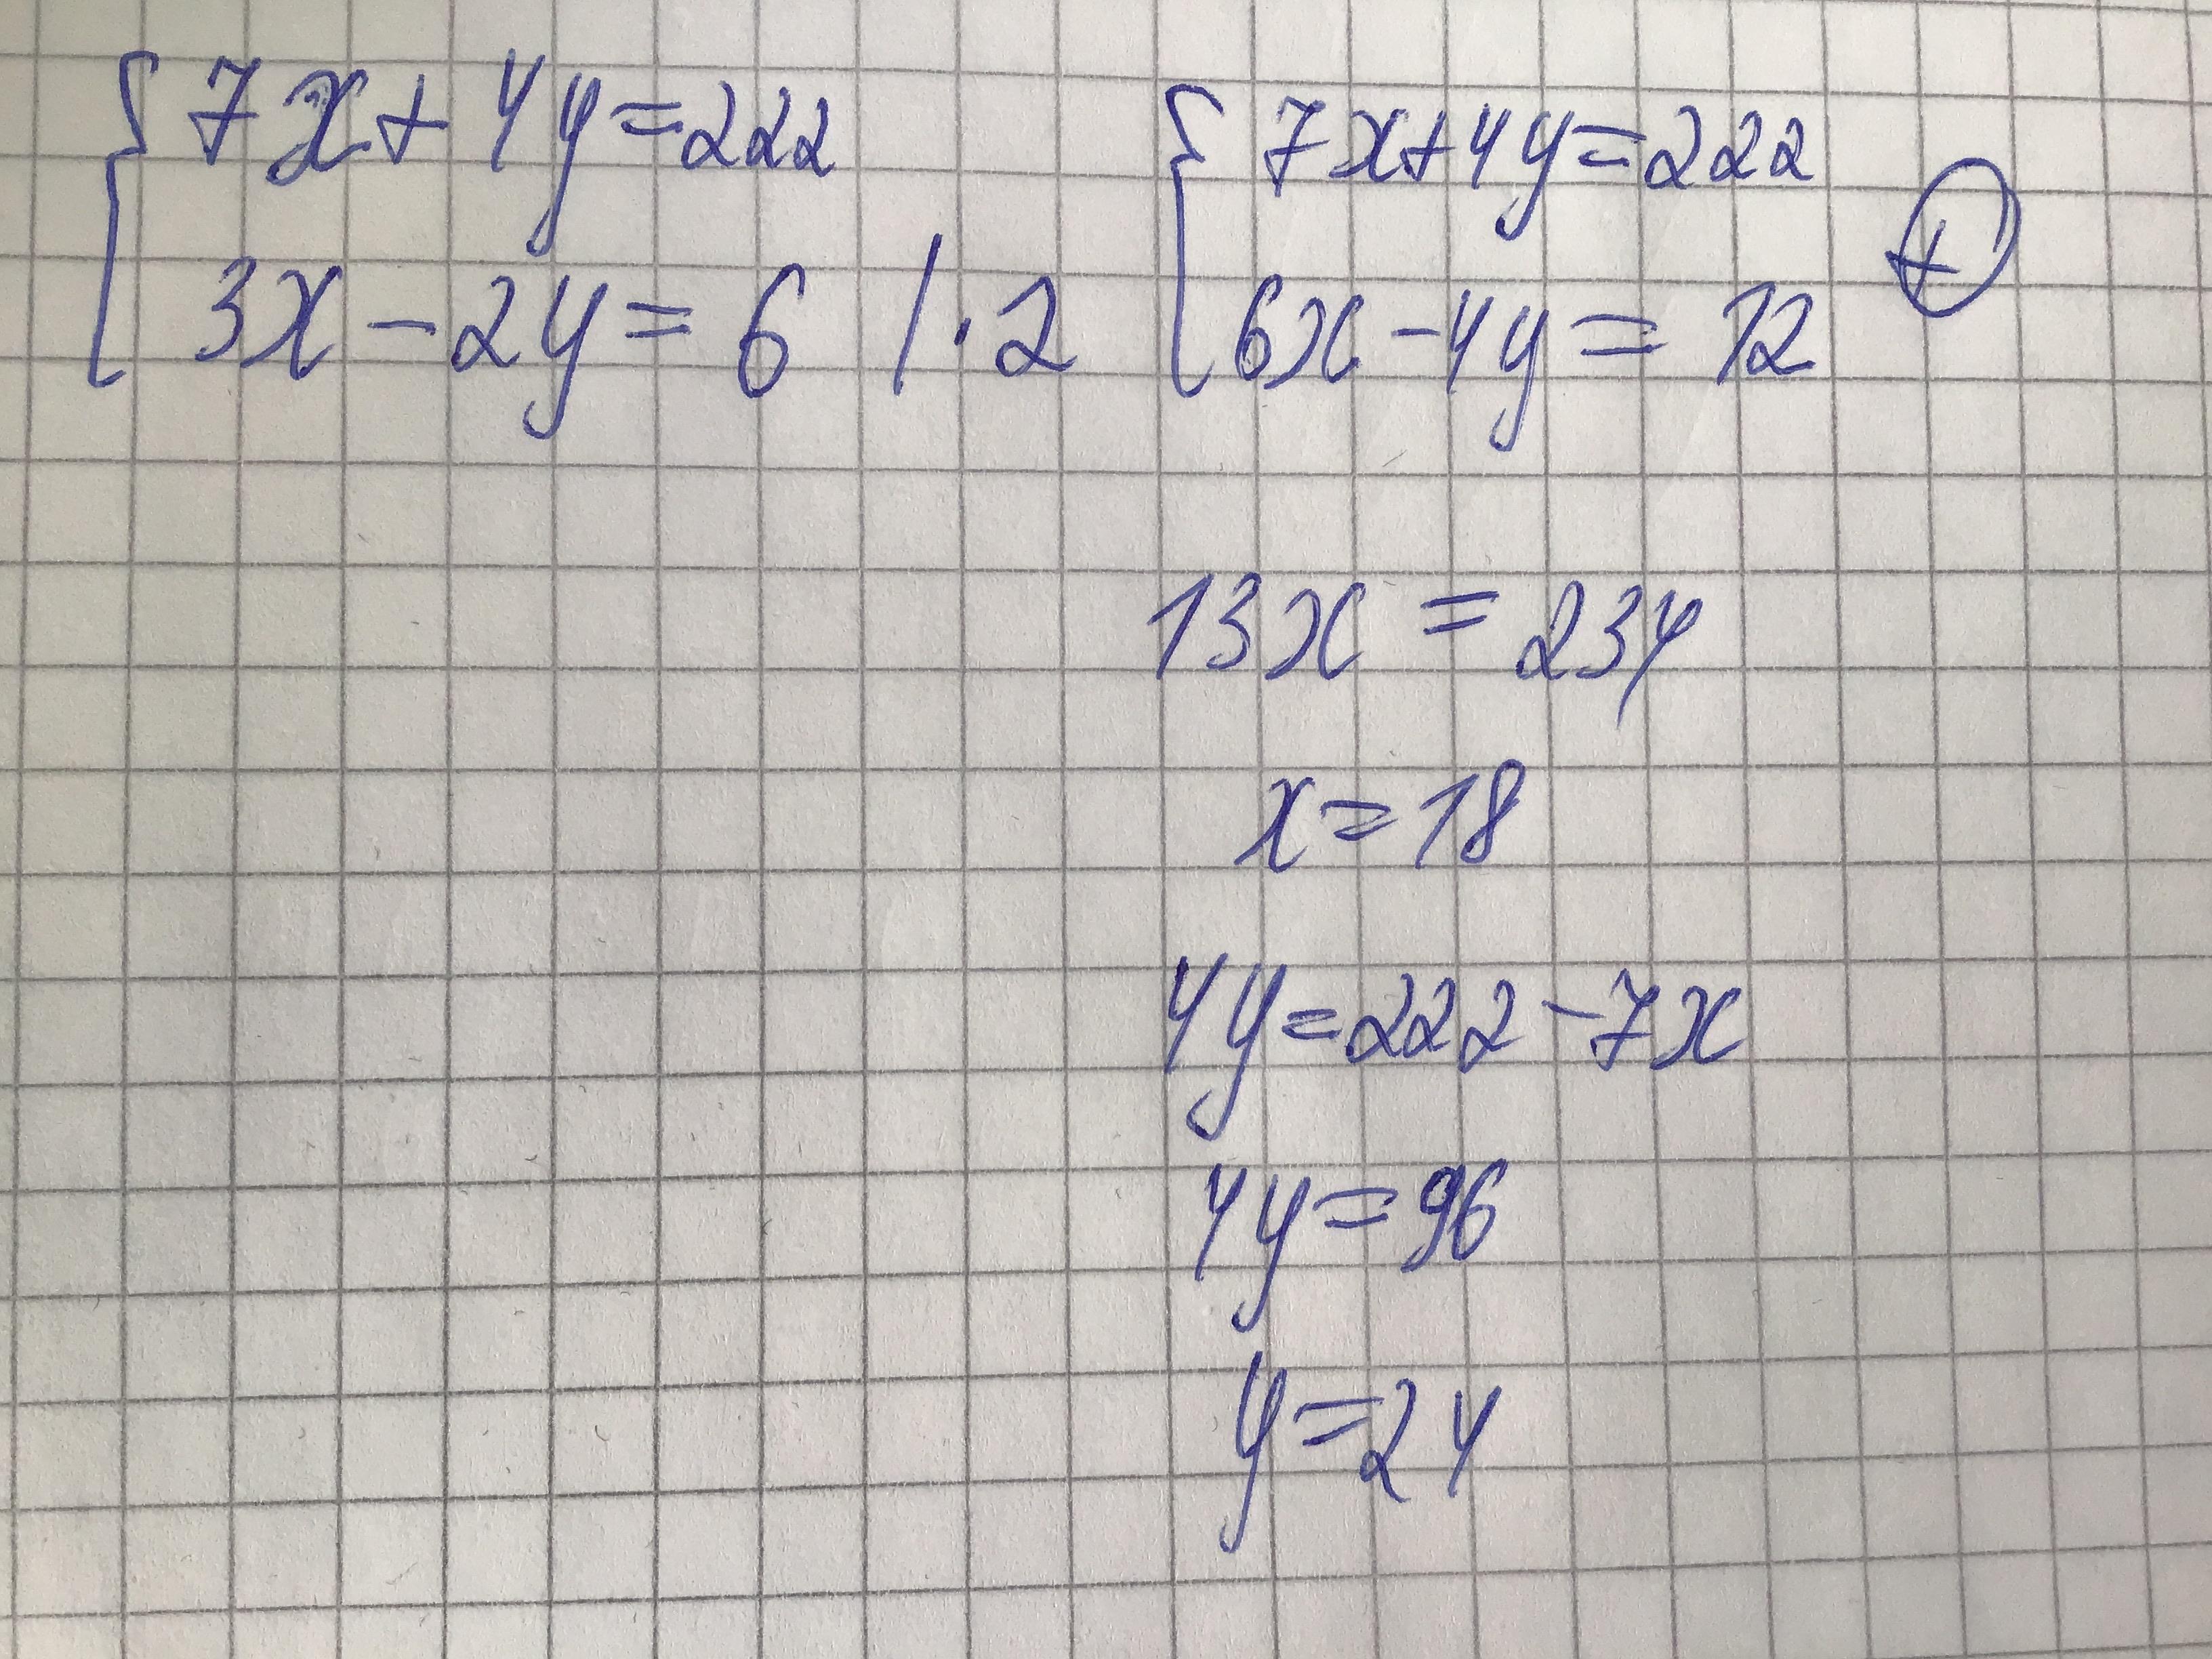 7x+4y=222
3x-2y=6 /·2
7x+4y=222
6x-4y=12
+
13x=234
x=18
4y=222-7x
4y=96
y=24